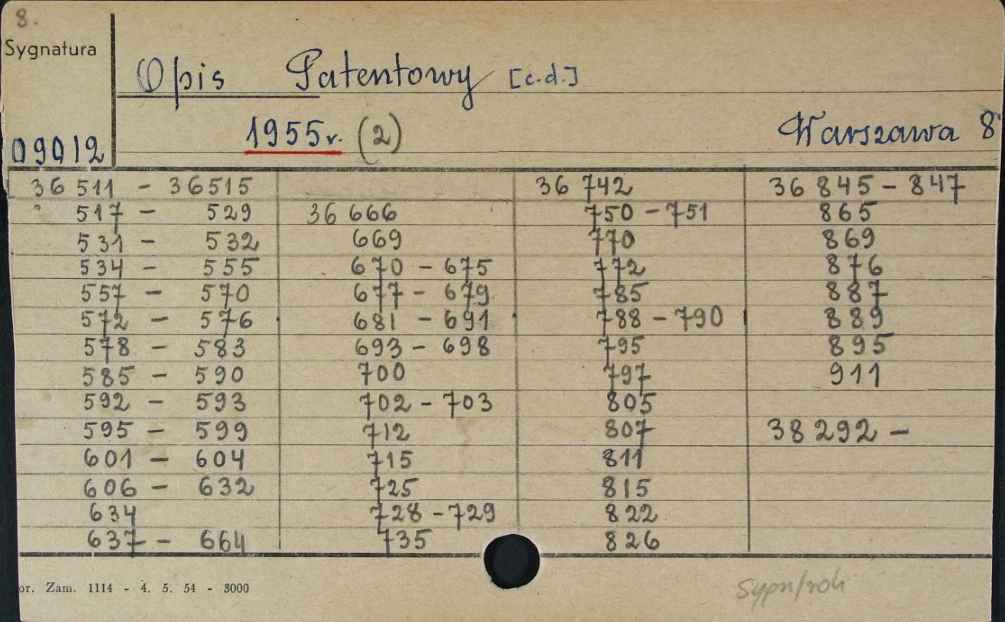 8.
Sygnatura
Opis Patentowy [c.d.]
09012
1955r. (2)
Warszawa 8
36 511 - 36515
517 - 529
531 - 532
534 - 555
557 - 570
572 - 576
578 - 583
585 - 590
592 - 593
595 - 599
601 - 604
606 - 632
634
637 - 664
36 666
669
670 - 675
677 - 679
681 - 691
693 - 698
700
702 - 703
712
715
725
728 - 729
735
36 742
750 - 751
770
772
785
788 - 790
795
797
805
807
811
815
822
826
36 845 - 847
865
869
876
887
889
895
911
38 292 -
or. Zam. 1114 - 4. 5. 54 - 3000